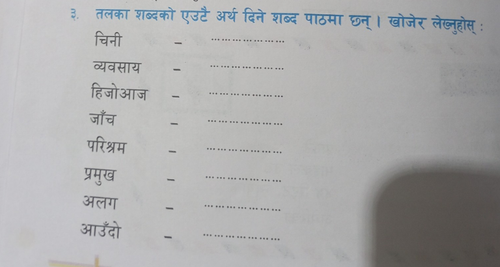 ३. तलका शब्दको एउटै अर्थ दिने शब्द पाठमा छन् । खोजेर लेख्नुहोस् :
चिनी – ........................
व्यवसाय – ........................
हिजोआज – ........................
जाँच – ........................
परिश्रम – ........................
प्रमुख – ........................
अलग – ........................
आउँदो – ........................